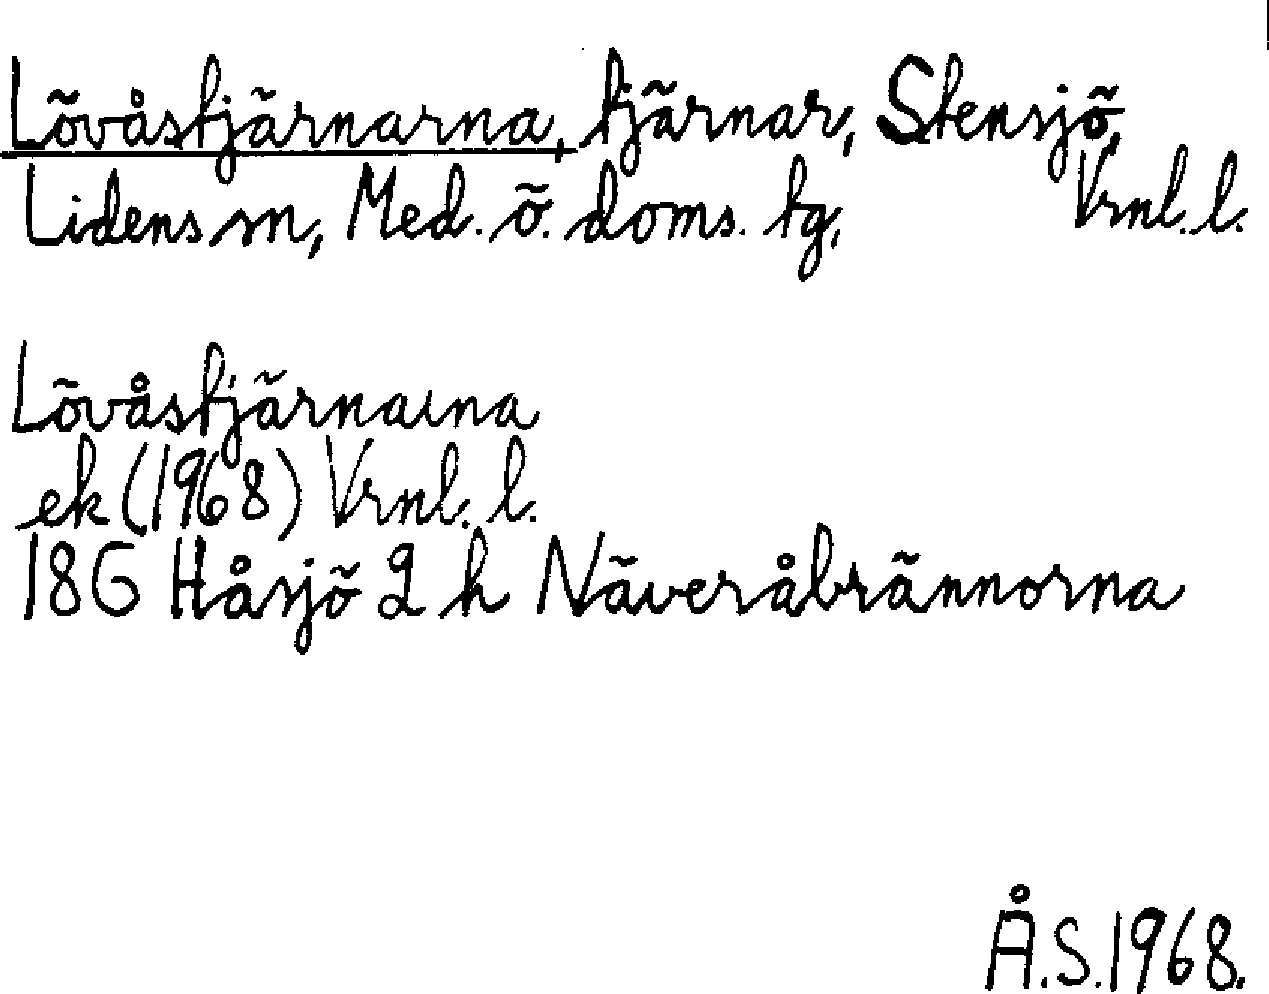 Lövåstjärnarna, tjärnar, Stensjö,
Lidens sn, Med. ö. doms. tg, Vrnl. l.
Lövåstjärnarna
ek (1968) Vrnl. l.
18G Håsjö 2 h Näveråbrännorna
Å.S. 1968.